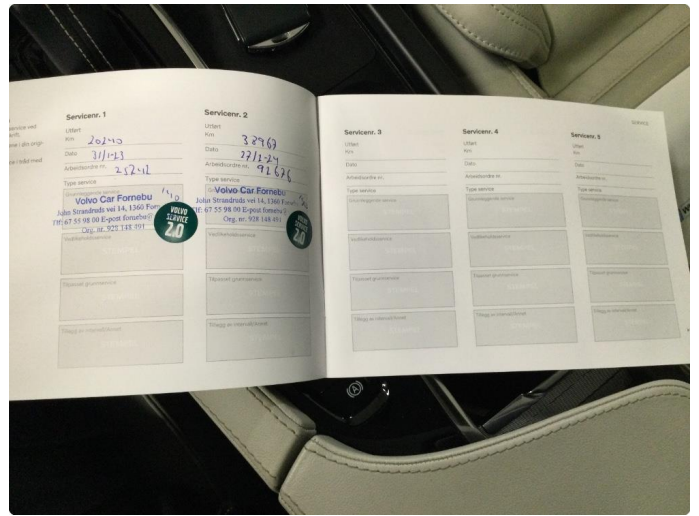 Servicenr. 1
Utført
Km 20240
Dato 31/1-23
Arbeidsordre nr. 25242
Type service
Volvo Car Fornebu
John Strandruds vei 14, 1360
Tlf: 67 55 98 00 E-post fornebu@
Org. nr. 928 148 491
VOLVO
SERVICE
2.0
Vedlikeholdsservice
Tilpasset grunnservice
Tillegg av intervall/annet
Servicenr. 2
Utført
Km 38967
Dato 27/2-24
Arbeidsordre nr. 92676
Type service
Volvo Car Fornebu
John Strandruds vei 14, 1360
Tlf: 67 55 98 00 E-post fornebu@
Org. nr. 928 148 491
VOLVO
SERVICE
2.0
Vedlikeholdsservice
Tilpasset grunnservice
SERVICE
Servicenr. 3
Utført
Km
Dato
Arbeidsordre nr.
Type service
Grunnleggende service
Vedlikeholdsservice
Tilpasset grunnservice
Servicenr. 4
Utført
Km
Dato
Arbeidsordre nr.
Type service
Grunnleggende service
Vedlikeholdsservice
Tilpasset grunnservice
Servicenr. 5
Utført
Km
Dato
Arbeidsordre nr.
Type service
Grunnleggende service
Vedlikeholdsservice
Tilpasset grunnservice